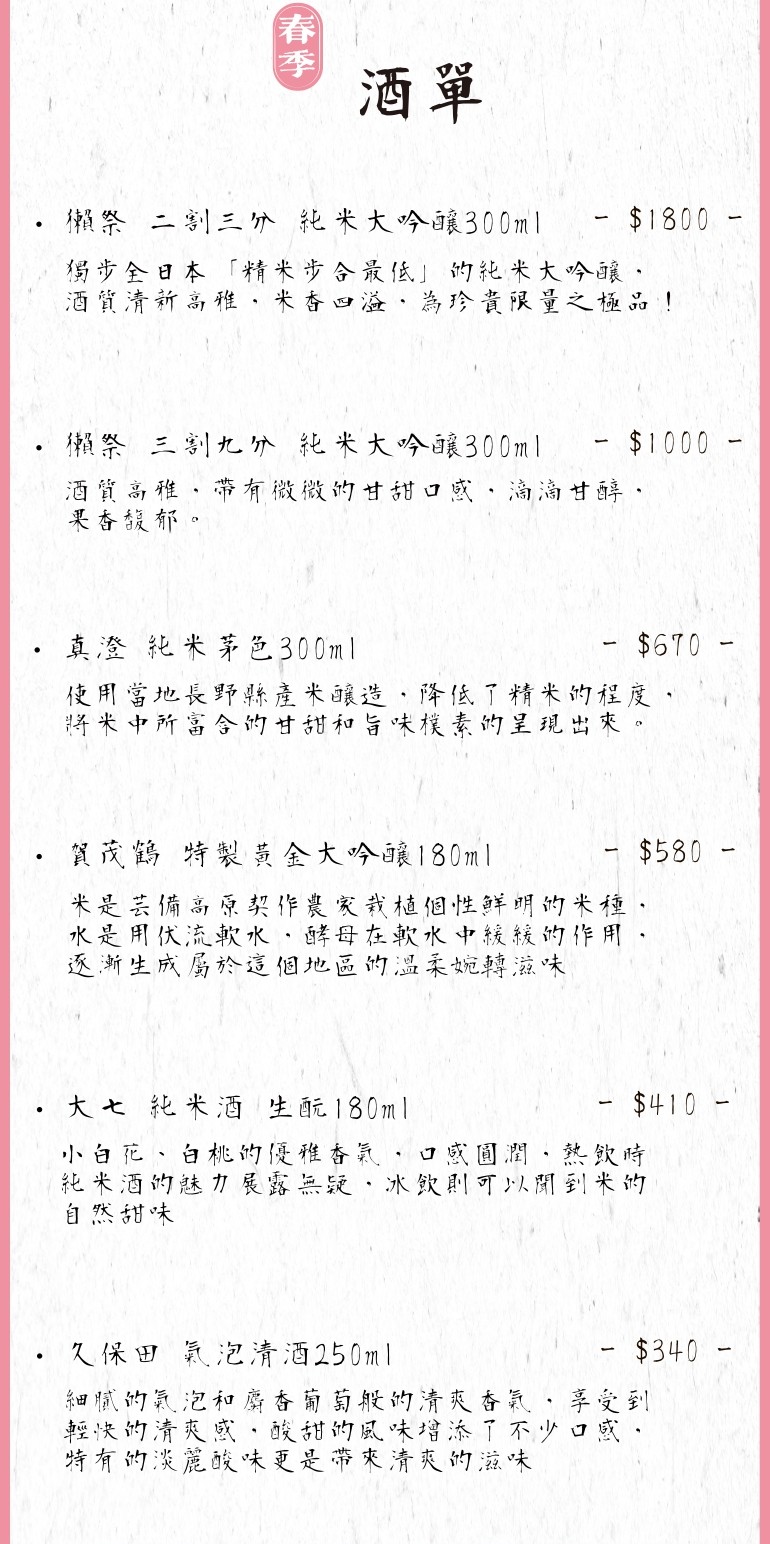 春季
酒單
· 獺祭 二割三分 純米大吟釀300ml - $1800 -
獨步全日本「精米步合最低」的純米大吟釀，
酒質清新高雅，米香四溢，為珍貴限量之極品！
· 獺祭 三割九分 純米大吟釀300ml - $1000 -
酒質高雅，帶有微微的甘甜口感，滴滴甘醇，
果香馥郁。
· 真澄 純米茅色300ml - $670 -
使用當地長野縣產米釀造，降低了精米的程度，
將米中所富含的甘甜和旨味樸素的呈現出來。
· 賀茂鶴 特製黃金大吟釀180ml - $580 -
米是芸備高原契作農家栽植個性鮮明的米種，
水是用伏流軟水，酵母在軟水中緩緩的作用，
逐漸生成屬於這個地區的溫柔婉轉滋味
· 大七 純米酒 生酛180ml - $410 -
小白花、白桃的優雅香氣，口感圓潤，熱飲時
純米酒的魅力展露無疑，冰飲則可以聞到米的
自然甜味
· 久保田 氣泡清酒250ml - $340 -
細膩的氣泡和麝香葡萄般的清爽香氣，享受到
輕快的清爽感，酸甜的風味增添了不少口感，
特有的淡麗酸味更是帶來清爽的滋味